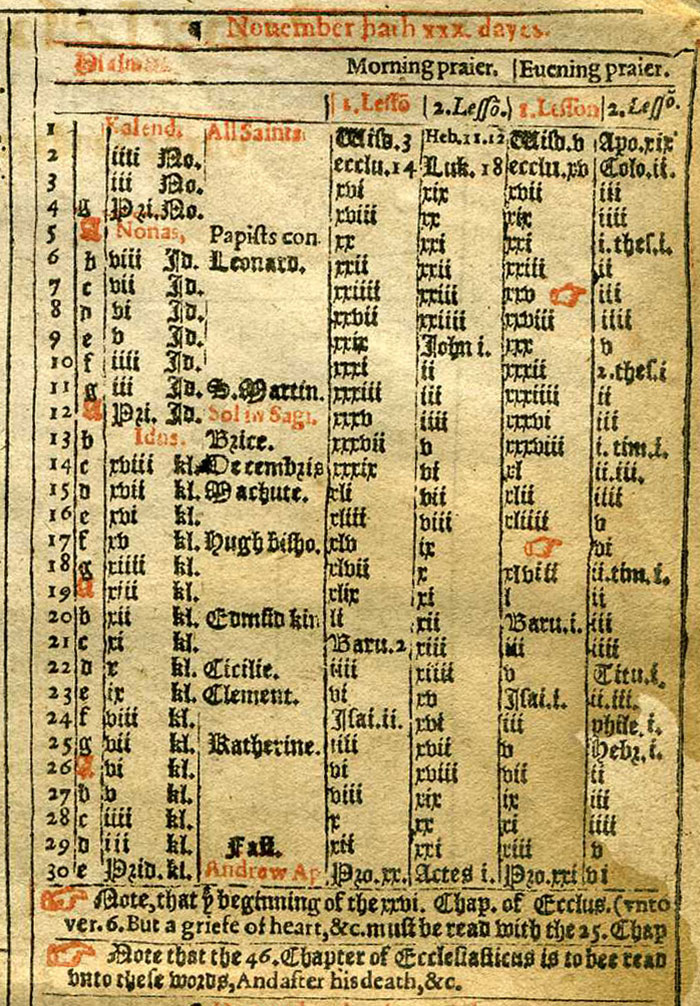 ¶ Nouember hath xxx. dayes.
Psalmes Morning praier. Euening praier.
1. Lessō 2. Lessō. 1. Lesson 2. Lessō.
1 Kalend. All Saints Wisd. 3 Heb. 11. 12 Wisd. v Apo. xix
2 iiii No. ecclu. 14 Luk. 18 ecclu. xv Colo. ii.
3 iii No. xvi xix xvii iii
4 g Pri. No. xviii xx xix iiii
5 A Nonas, Papists con xx xxi xxi i. thes. i.
6 b viii Id. Leonard. xxii xxii xxiii ii
7 c vii Id. xxiiii xxiii xxv ☞ iii
8 d vi Id. xxvii xxiiii xxviii iiii
9 e v Id. xxix John i. xxx v
10 f iiii Id. xxxi ii xxxii 2. thes. i
11 g iii Id. S. Martin. xxxiii iii xxxiiii ii
12 A Pri. Id. Sol in Sagi. xxxv iiii xxxvi iii
13 b Idus. Brice. xxxvii v xxxviii i. tim. i.
14 c xviii kl. Decembris xxxix vi xl ii. iii.
15 d xvii kl. Machute. xli vii xlii iiii
16 e xvi kl. xliii viii xliiii v
17 f xv kl. Hugh bisho. xlv ix ☞ vi
18 g xiiii kl. xlvii x xlviii ii. tim. i.
19 A xiii kl. xlix xi l ii
20 b xii kl. Edmūd kin li xii Baru. i. iii
21 c xi kl. Baru. 2 xiii iii iiii
22 d x kl. Cicilie. iiii xiiii v Titu. i.
23 e ix kl. Clement. vi xv Isai. i. ii. iii.
24 f viii kl. Isai. ii. xvi iii phile. i.
25 g vii kl. Katherine. iiii xvii v Hebr. i.
26 A vi kl. vi xviii vii ii
27 b v kl. viii xix ix iii
28 c iiii kl. x xx xi iiii
29 d iii kl. Fast. xii xxi xiii v
30 e Prid. kl. Andrew Ap Pro. xx. Actes i. Pro. xxi vi
☞ Note, that yͤ beginning of the xxvi. Chap. of Ecclus. (vnto
ver. 6. But a griefe of heart, &c. must be read with the 25. Chap
☞ Note that the 46. Chapter of Ecclesiasticus is to bee read
vnto these words, And after his death, &c.